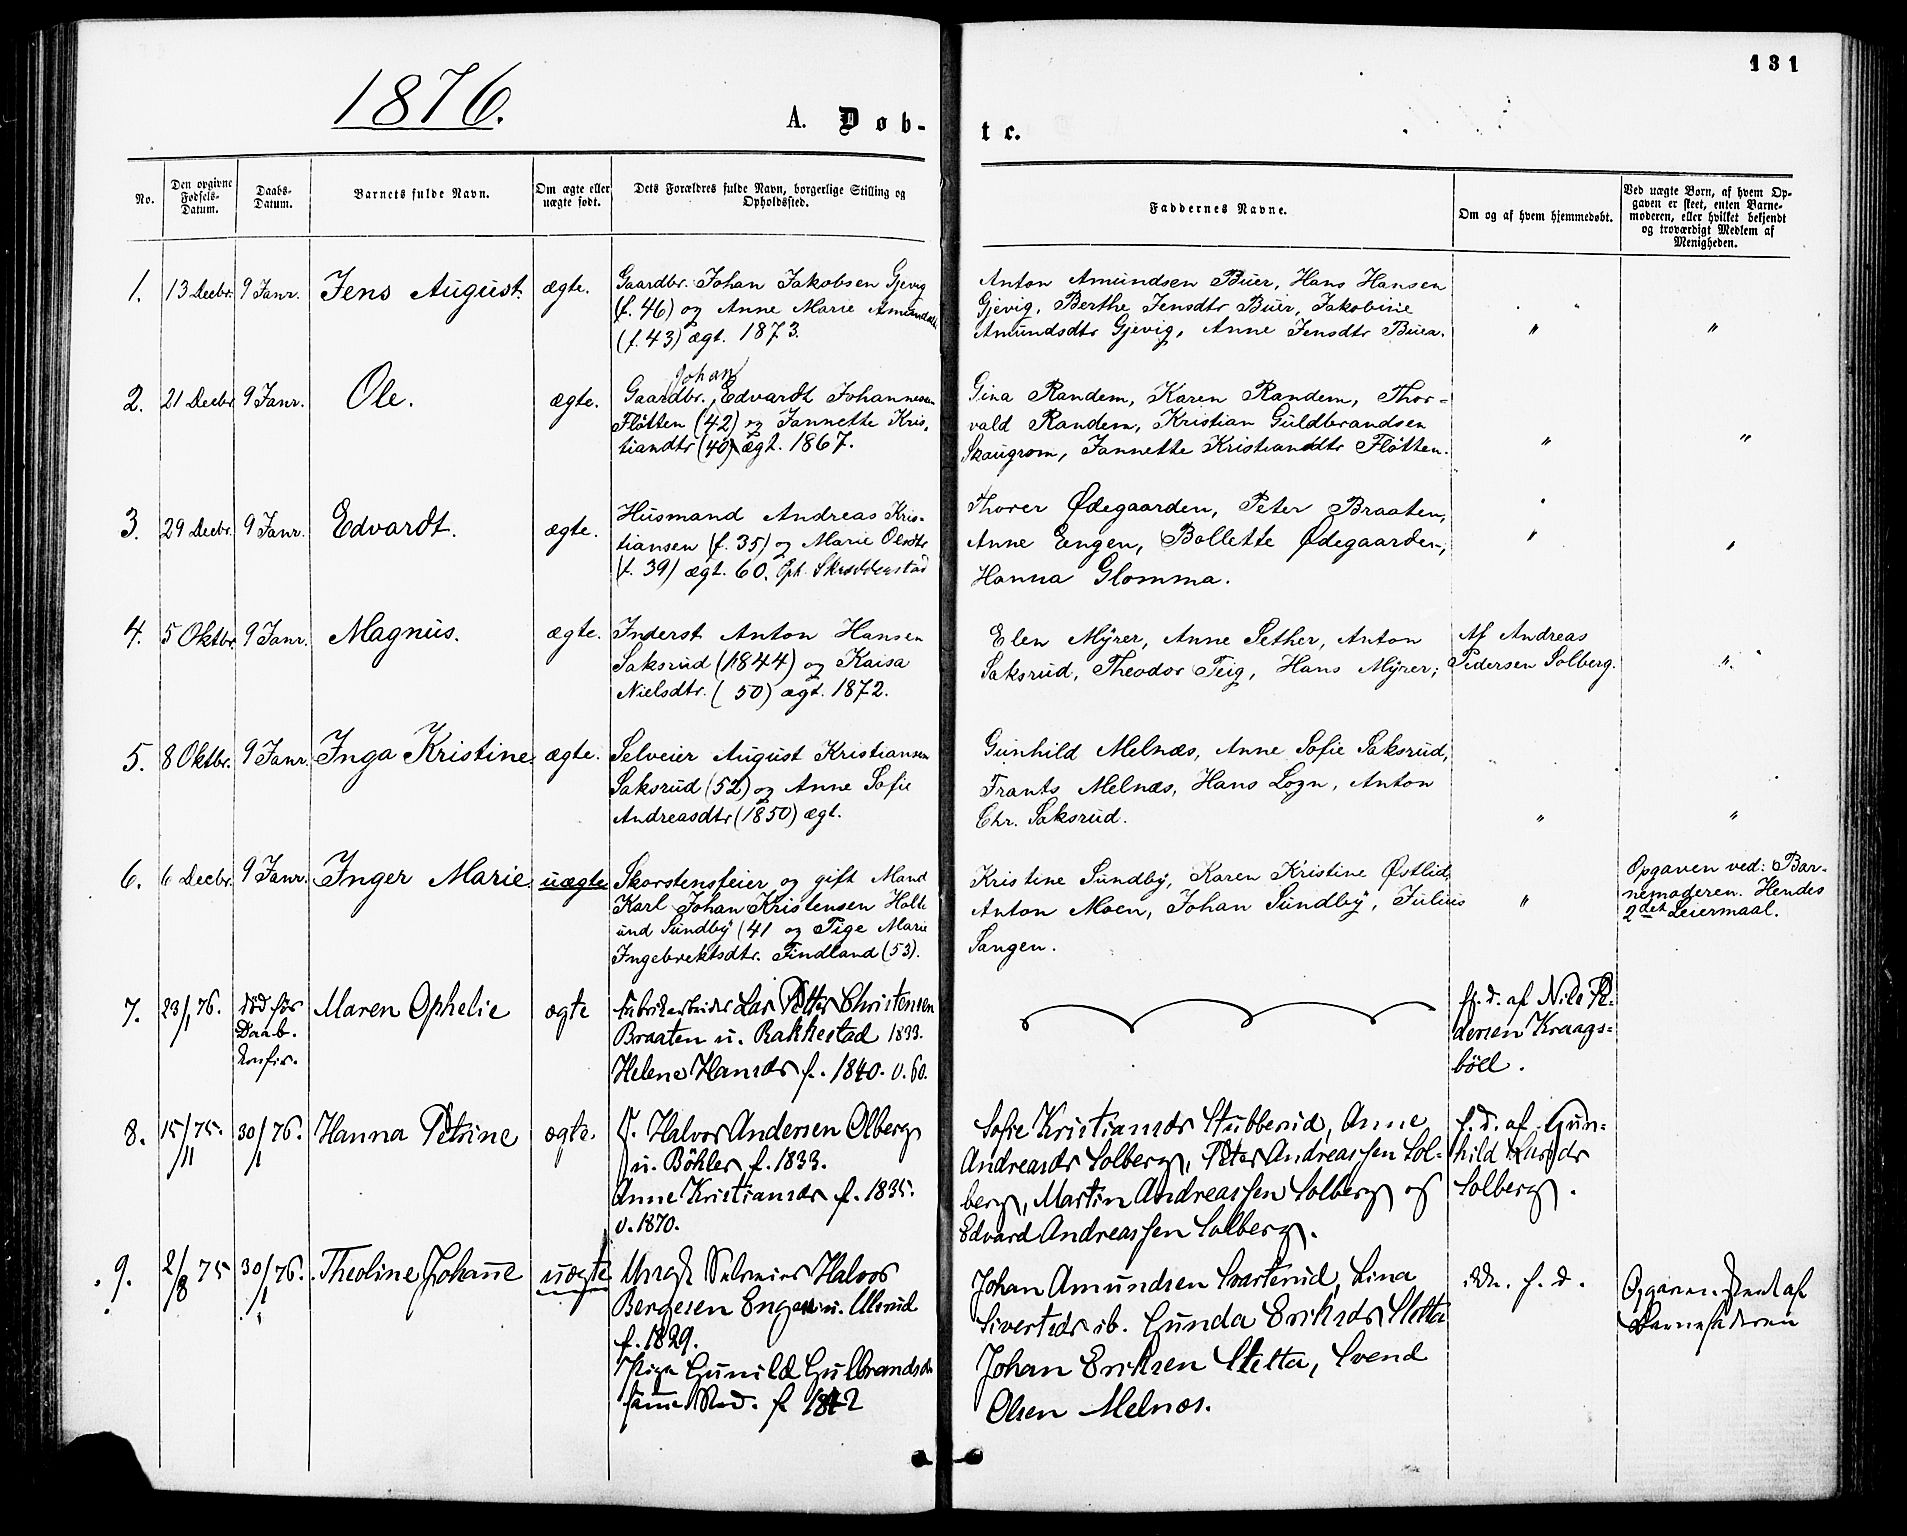 131
1876.
A. Døb-
te.
No.
Den opgivne Fødsels-Datum.
Daabs-Datum.
Barnets fulde Navn.
Om ægte eller uægte født.
Dets Forældres fulde Navn, borgerlige Stilling og Opholdssted.
Faddernes Navne.
Om og af hvem hjemmedøbt.
Ved uægte Børn, af hvem Opgaven er skeet, enten Barnemoderen, eller hvilket bekjendt og troværdigt Medlem af Menigheden.
1. 13 Decbr. 9 Janr. Jens August. ægte.
Gaardbr. Johan Jakobsen Gjevig
(f. 46) og Anne Marie Amundsdtr
(f. 43) ægt. 1873.
Anton Amundsen Buer, Hans Hansen
Gjevig, Berthe Jensdtr Buer, Jakobine
Amundsdtr Gjevig, Anne Jensdtr Buer.
" "
2. 21 Decbr. 9 Janr. Ole. ægte.
Johan
Gaardbr. Edvardt Johannesen
Fløtten (42) og Jannette Kris,
tiandtr (40) ægt. 1867.
Gina Randem, Karen Randem, Thor=
vald Randem, Kristian Guldbrandsen
Skaugrom, Jannette Kristiandtr Fløtten.
" "
3. 29 Decbr. 9 Janr. Edvardt. ægte.
Husmand Andreas Kris-
tiansen (f. 35) og Marie Olsdtr
(f. 39) ægt. 60. Oph.
Thorer Ødegaarden, Peter Braaten,
Anne Eengen, Bollette Ødegaarden,
Hanna Glomma.
" "
4. 5 Oktbr. 9 Janr. Magnus. ægte.
Inderst Anton Hansen
Saksrud (1844) og Kaisa
Nielsdtr. (50) ægt. 1872.
Elen Myrer, Anne Sether, Anton
Saksrud, Theodor Teig, Hans Myrer;
Af Andreas
Pedersen Solberg.
"
5. 8 Oktbr. 9 Janr. Inga Kristine ægte.
Selveier August Kristiansen
Saksrud (52) og Anne Sofie
Andreasdtr (1850) ægt.
Gunhild Melnæs, Anne Sofie Saksrud,
Frants Melnæs, Hans Logn, Anton
Chr. Saksrud.
" "
6. 6 Decbr. 9 Janr. Inger Marie. uægte
Skorstensfeier og gift Mand
Karl Johan Kristensen Holte
und Sundby (41 og Pige Marie
Ingebrektsdtr. Findland (53).
Kristine Sundby, Karen Kristine Østlid,
Anton Moen, Johan Sundby, Julius
Sangen.
"
Opgaven ved: Bar-
nemoderen. Hendes
2det Leiermaal.
7. 23/1 76. død før Maren Ophelie ægte
Daab.
Fabrikarbeider Lars Petter Christensen
Braaten u. Rakkestad 1833.
Helene Hansdr f. 1840. v. 60.
hj. d. af Nils Pe-
dersen Kraags=
böll.
8. 15/11 75. 30/1 76. Hanna Petrine ægte.
Halvor Andersen Olberg
u. Böhler f. 1833.
Anne Kristiansdr f. 1835.
v. 1870.
Sofie Kristiansdr Stubberud, Anne
Andreasdr Solberg, Peter Andreassen Sol-
berg, Martin Andreassen Solberg og
Edvard Andreassen Solberg.
h. d. af Gun-
hild Larsdr
Solberg.
9. 2/8 75 30/1 76. Theoline Johanne uægte
Ungk. Selveier Halvor
Bergesen Engen u. Ulsrud
f. 1829.
Pige Gunild Gulbrandsdr
samme Sted. f 1842
Johan Amundsen Svarterud, Lina
Sivertsdr ib. Gunda Eriksdr Sletta
Johan Eriksen Sletta, Svend
Olsen Melnæs.
h. d.
Opgaven af
Barnefaderen